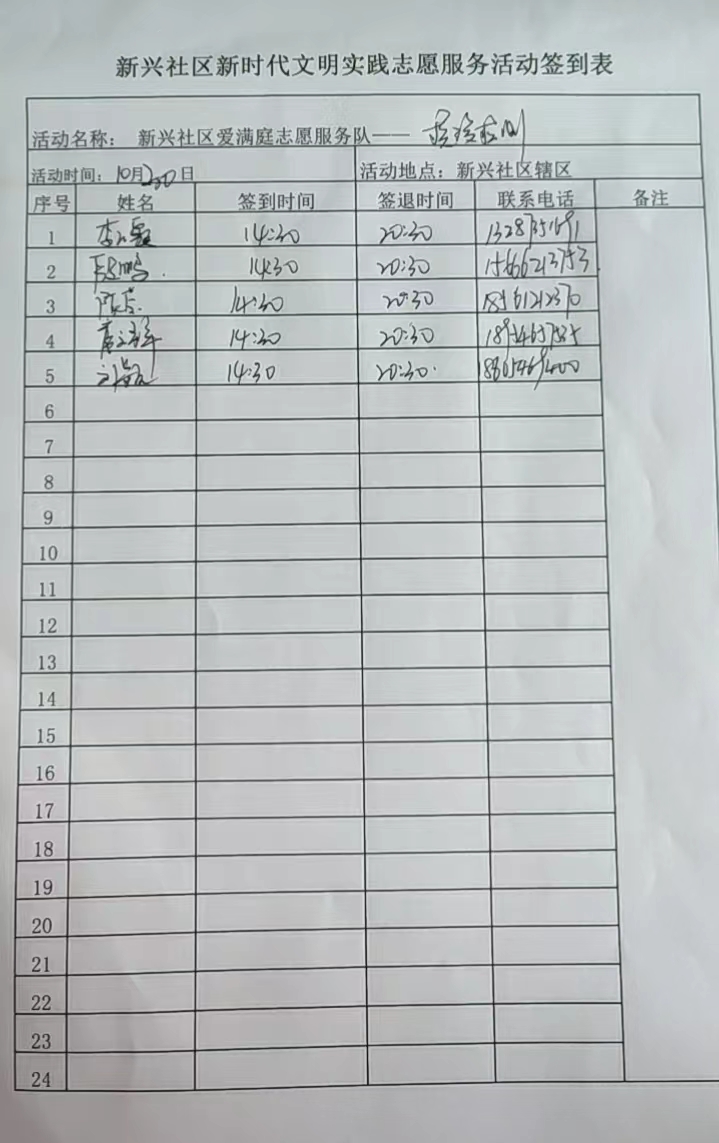 新兴社区新时代文明实践志愿服务活动签到表
活动名称： 新兴社区爱满庭志愿服务队——
活动时间：10月20日 活动地点：新兴社区辖区
序号 姓名 签到时间 签退时间 联系电话 备注
1 14:30 20:30
2 14:30 20:30 15666213753
3 14:30 20:30
4 14:30 20:30
5 14:30 20:30
6
7
8
9
10
11
12
13
14
15
16
17
18
19
20
21
22
23
24